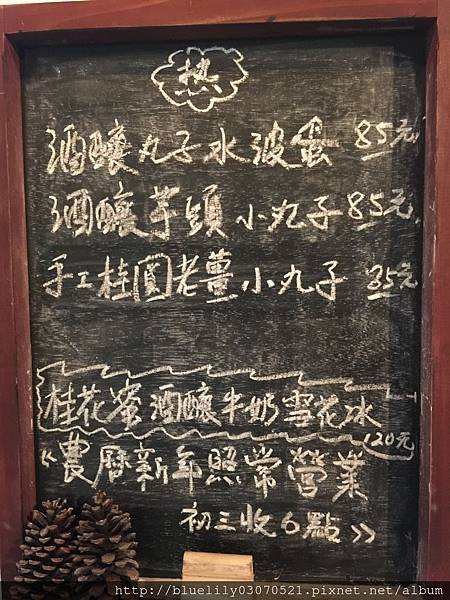 热
酒釀丸子水波蛋 85元
酒釀芋頭小丸子 85元
手工桂圓老薑小丸子 85元
桂花蜜酒釀牛奶雪花冰
120元
《農曆新年照常營業
初三收6點》
http://bluelily03070521.pixnet.net/album